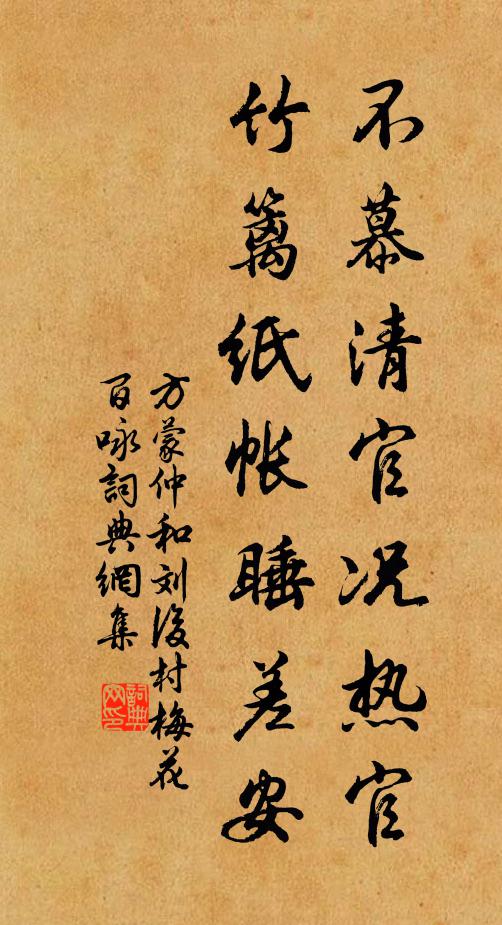 不慕清官况热官
竹篱纸帐睡差安
方蒙仲和刘後村梅花
百咏詞典網集
詞典网印